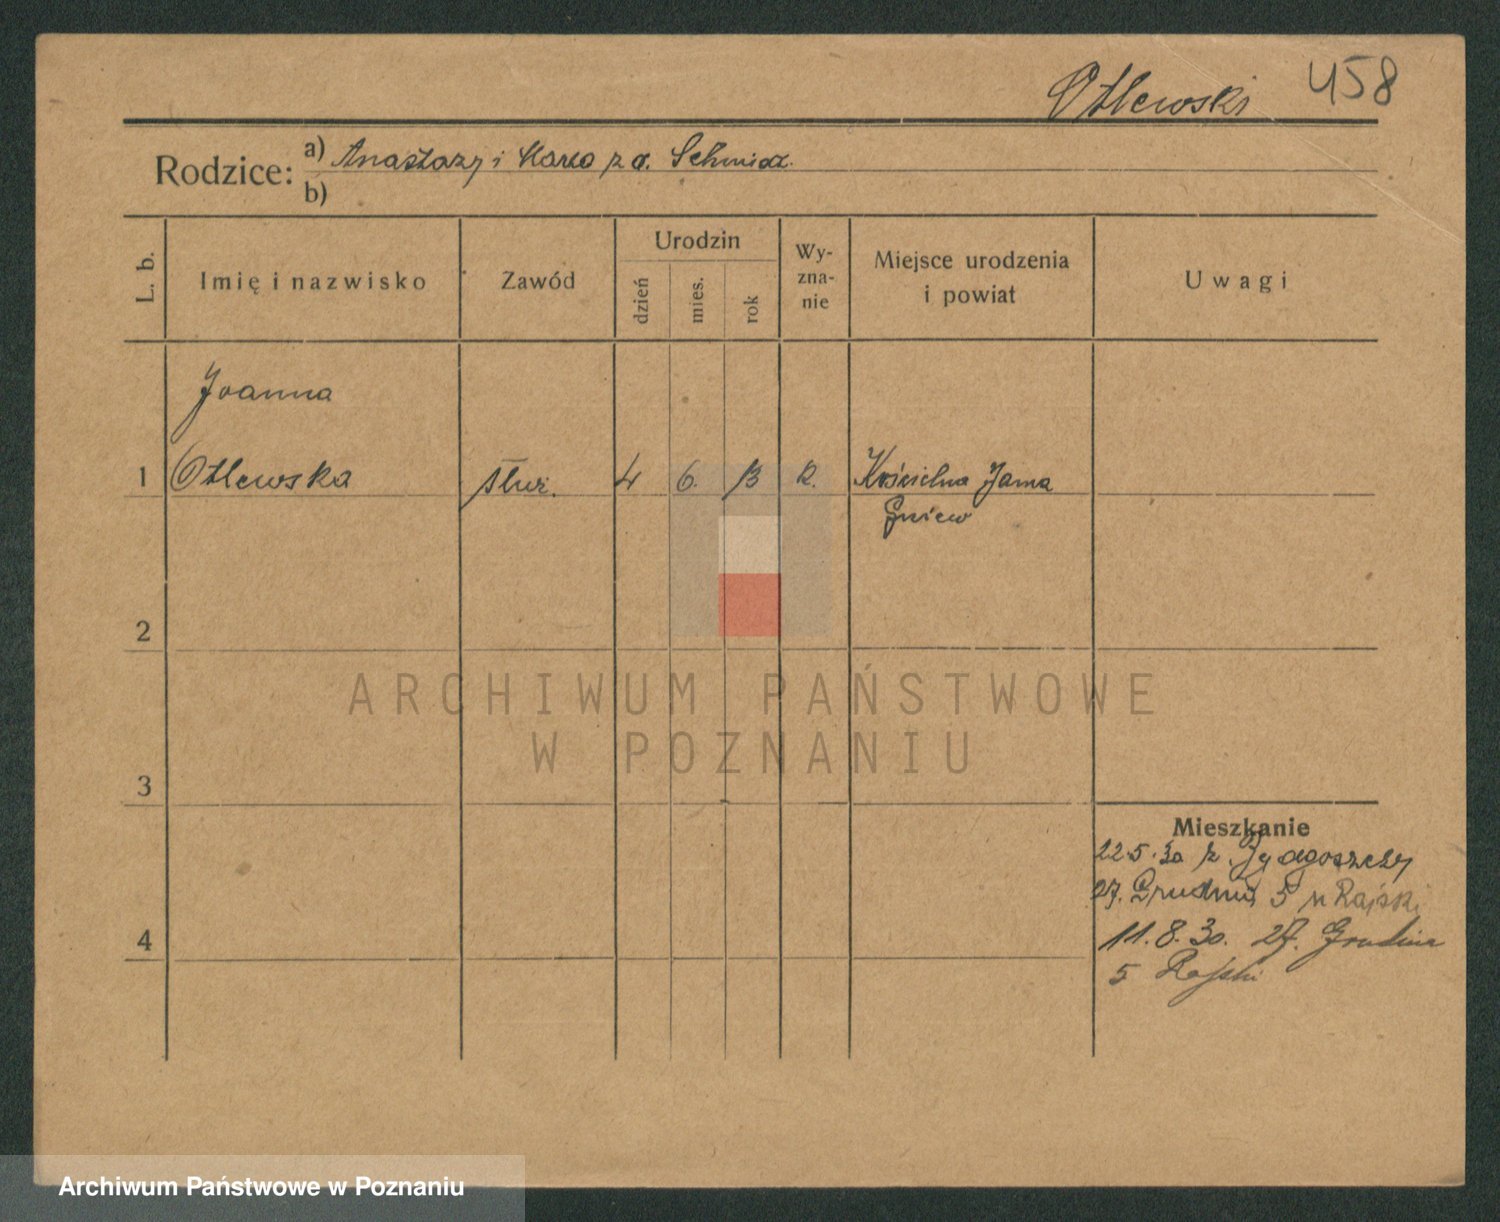 Otlewski 458
Rodzice: a) Anastazy i z d. Schmidt
b)
L. b. Imię i nazwisko Zawód Urodzin dzień mies. rok Wy-zna-nie Miejsce urodzenia i powiat Uwagi
Joanna
1 Otlewska służ. 4 6. 13 R. Kościelna Jania
Gniew
2
ARCHIWUM PAŃSTWOWE
W POZNANIU
3
Mieszkanie
22.5.30 z Bydgoszczy
27. Grudnia 5 u Rajski
4
11.8.30. 27. Grudnia
5 Rajski
Archiwum Państwowe w Poznaniu